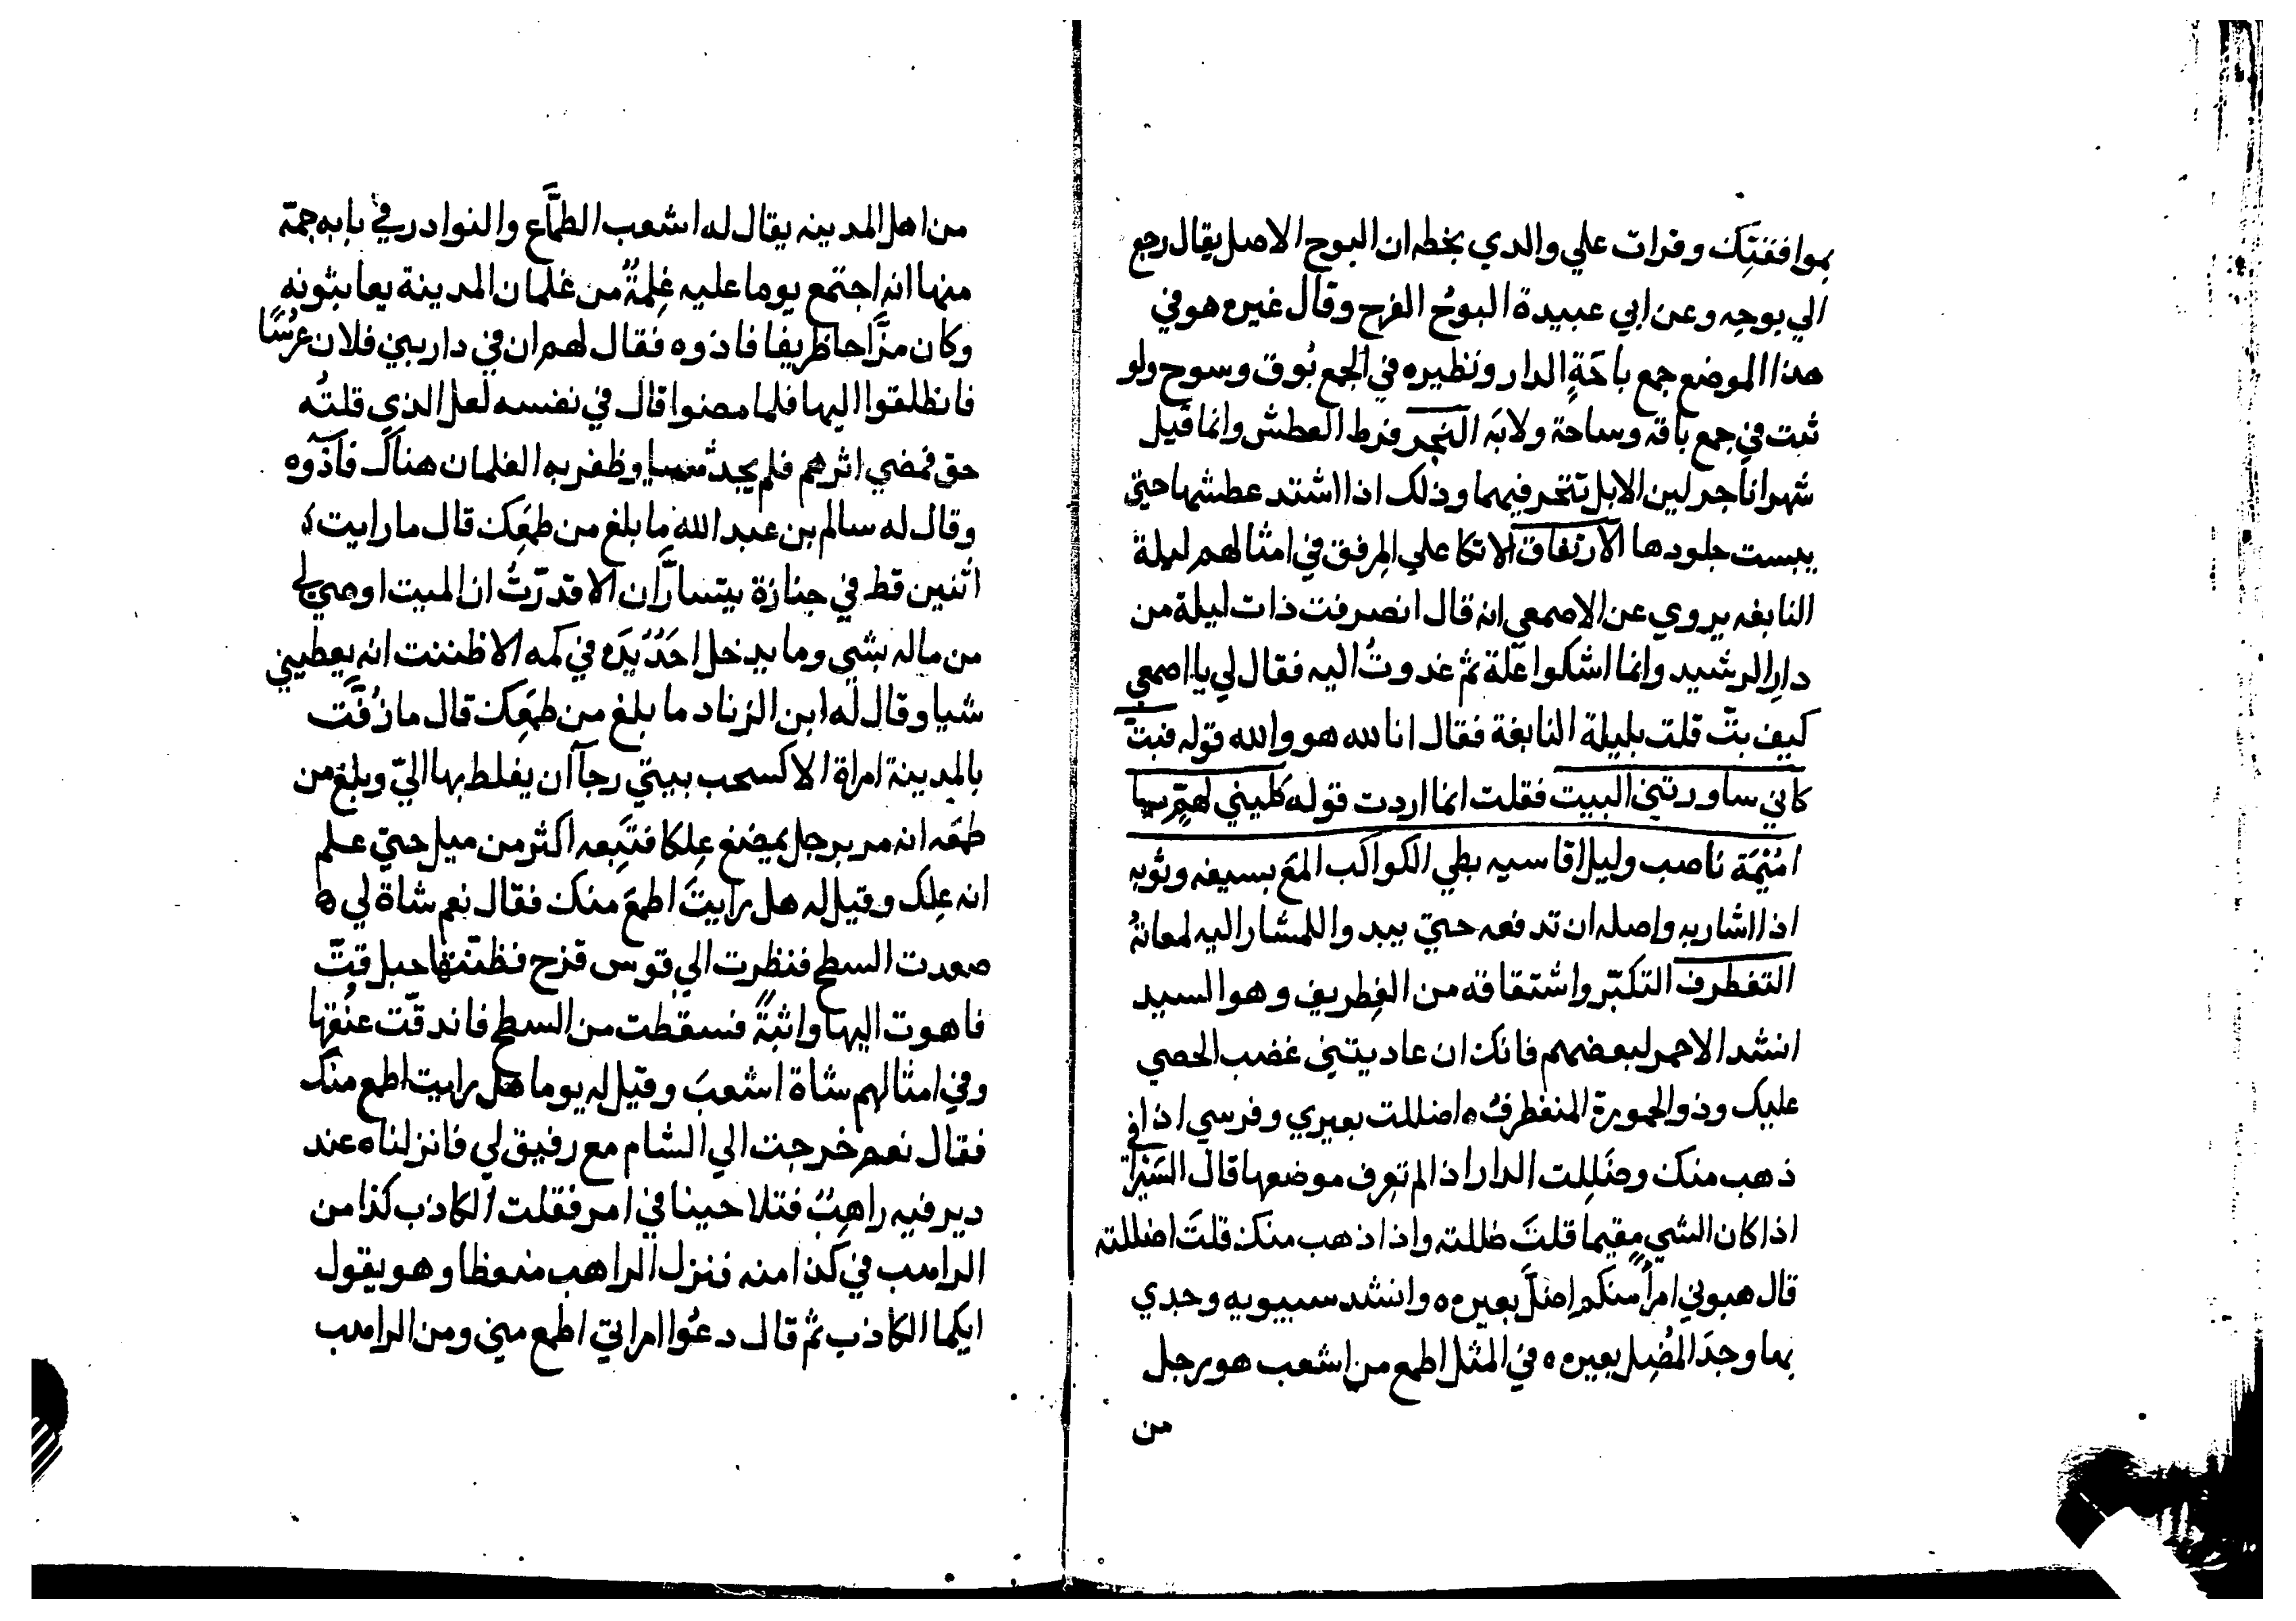 بموافقتك وقرات علي والدي بخطه ان البوح الاصل يقال رجع
الي بوحه وعن ابي عبيدة البوح الفرح وقال غيره هو في
هذا الموضع جمع باحة الدار ونظيره في الجمع بوق وسوح ولو
ثبت في جمع باقة وساحة ولابة النجر فرط العطش وانما قيل
شهرا ناجر لين الابل تنجر فيهما وذلك اذا اشتد عطشها حتي
يبست جلودها الارتفاق الاتكا علي المرفق في امثالهم ليلة
النابغه يروي عن الاصمعي انه قال انصرفت ذات ليلة من
دار الرشيد وانما اشكوا علة ثم غدوت اليه فقال لي يا اصمعي
كيف بت قلت بليلة النابغة فقال انا لله هو والله قوله فبت
كاني ساورتني البيت فقلت انما اردت قوله كليني لهم يا
اميمة ناصب وليل اقاسيه بطي الكواكب المع بسيفه وثوبه
اذا اشار به واصله ان ترفعه حتي يبدوا للمشار اليه لمعانه
التغطرف التكبر واشتقاقه من الغطريف وهو السيد
انشد الاحمر لبعضهم فانك ان عاديتني غضب الحصي
عليك وذو الجبورة المتغطرف ه اضللت بعيري وفرسي اذا
ذهب منك وضللت الدار اذا لم تعرف موضعها قال السيرافي
اذا كان الشي مقيما قلت ظللته واذا ذهب منك قلت اضللته
قال هبوني امرأ منكم اضل بعيره ه وانشد سيبويه وجدي
بها وجد المضل بعيره ه في المثل اطمع من اشعب هو رجل
من
من اهل المدينه يقال له اشعب الطماع والنوادر في بابه جمة
منها انه اجتمع يوما عليه غلمة من غلمان المدينة يعابثونه
وكان مزاحا ظريفا فاذوه فقال لهم ان في دار بني فلان عرسا
فانطلقوا اليها فلما مضوا قال في نفسه لعل الذي قلته
حق فمضي اثرهم فلم يجد شيا وظفر به الغلمان هناك فآذوه
وقال له سالم بن عبد الله ما بلغ من طمعك قال ما رايت
اثنين قط في جنازة يتساران الا قدرت ان الميت اوصي لي
من ماله بشي وما يدخل احد يده في كمه الا ظننت انه يعطيني
شيا وقال له ابن الزناد ما بلغ من طمعك قال ما زفت
بالمدينة امراة الا كسحب بيتي رجاآ ان يغلط بها الي وبلغ من
طمعه انه مر برجل يمضغ علكا فتبعه اكثر من ميل حتي علم
انه علك وقيل له هل رايت اطمع منك فقال نعم شاة لي ه
صعدت السطح فنظرت الي قوس قزح فظنتها حبل قت
فاهوت اليها واثبة فسقطت من السطح فاندقت عنقها
وفي امثالهم شاة اشعب وقيل له يوما هل رايت اطمع منك
فقال نعم خرجت الي الشام مع رفيق لي فانزلناه عند
دير فيه راهب فتلاحينا في امر فقلت الكاذب كذا من
الراهب في كذا منه فنزل الراهب منعظا وهو يقول
ايكما الكاذب ثم قال دعوا امراتي اطمع مني ومن الراهب